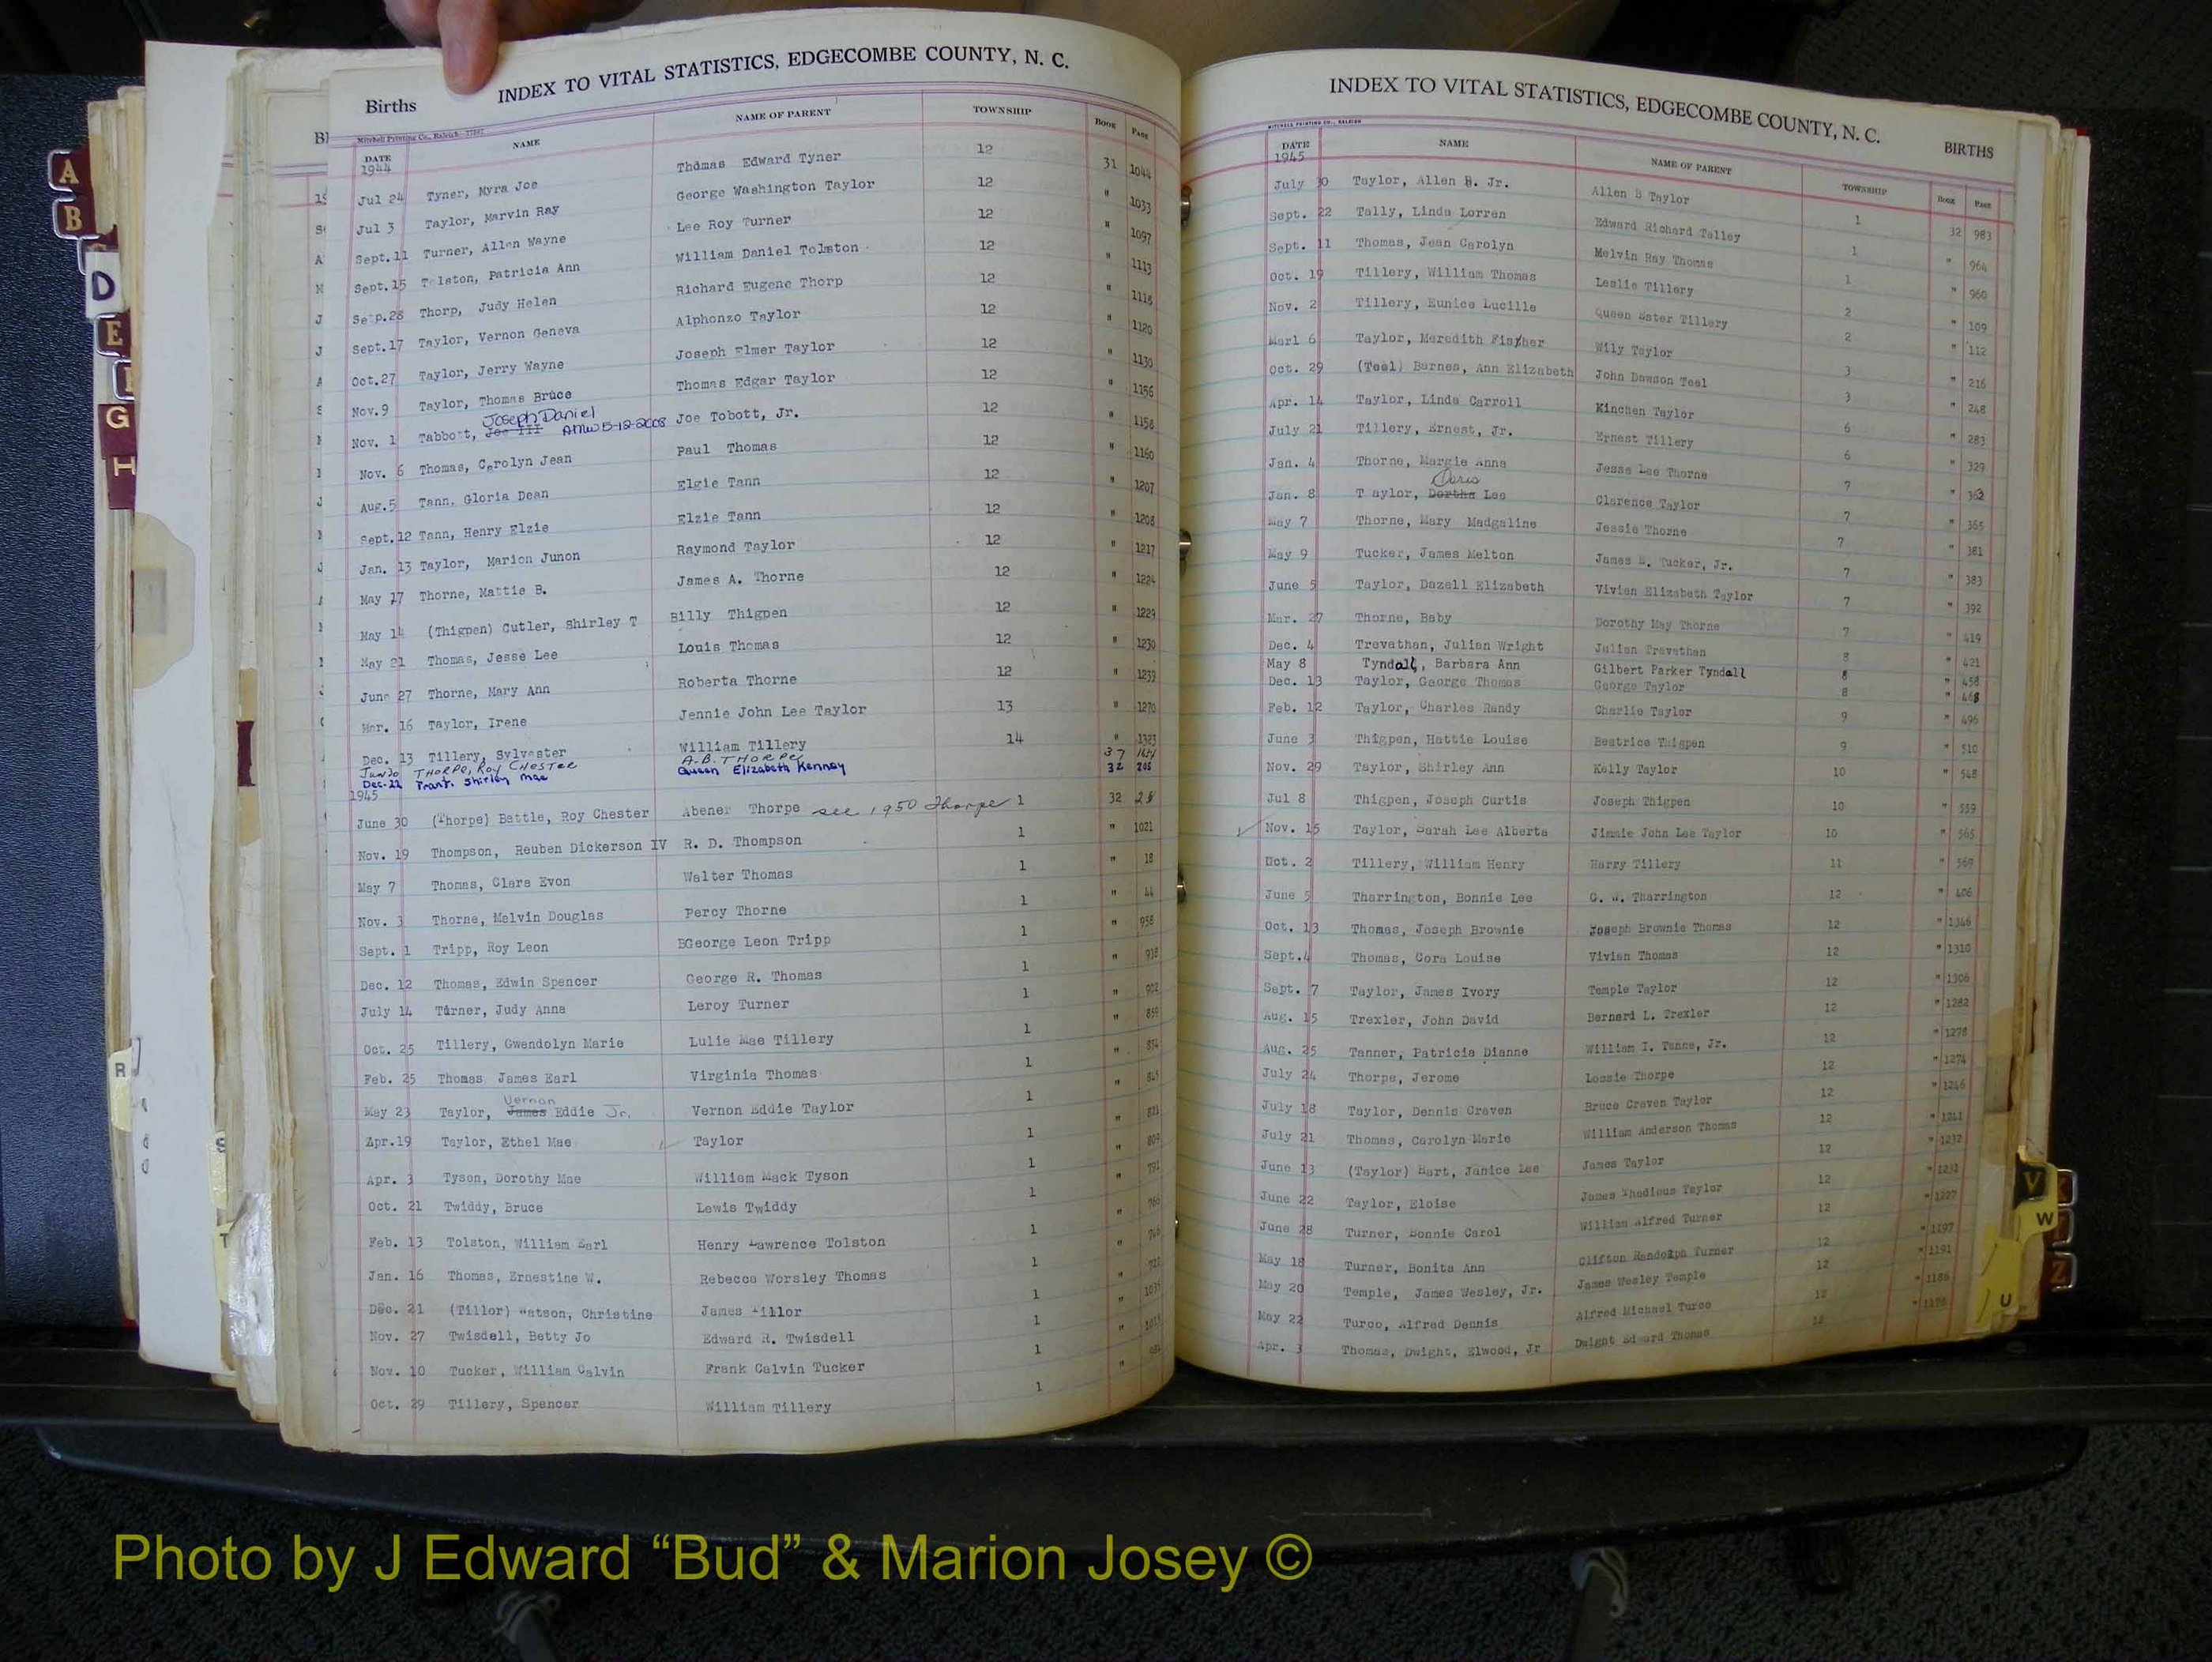 INDEX TO VITAL STATISTICS, EDGECOMBE COUNTY, N. C.
Births
Mitchell Printing Co., Raleigh
DATE NAME NAME OF PARENT TOWNSHIP BOOK PAGE
1944
Jul 24 Tyner, Myra Joe Thomas Edward Tyner 12 31 1044
Jul 3 Taylor, Marvin Ray George Washington Taylor 12 " 1033
Sept. 11 Turner, Allen Wayne Lee Roy Turner 12 " 1097
Sept. 15 Tolston, Patricia Ann William Daniel Tolston 12 " 1113
Sep. 28 Thorp, Judy Helen Richard Eugene Thorp 12 " 1118
Sept. 17 Taylor, Vernon Geneva Alphonzo Taylor 12 " 1120
Oct. 27 Taylor, Jerry Wayne Joseph Elmer Taylor 12 " 1130
Nov. 9 Taylor, Thomas Bruce Thomas Edgar Taylor 12 " 1156
Joseph Daniel
Nov. 1 Tabbott, Joe III AMW 5-12-2008 Joe Tobott, Jr. 12 " 1158
Nov. 6 Thomas, Carolyn Jean Paul Thomas 12 " 1160
Aug. 5 Tann, Gloria Dean Elgie Tann 12 " 1207
Sept. 12 Tann, Henry Elzie Elzie Tann 12 " 1208
Jan. 13 Taylor, Marion Junon Raymond Taylor 12 " 1217
May 17 Thorne, Mattie B. James A. Thorne 12 " 1224
May 14 (Thigpen) Cutler, Shirley T Billy Thigpen 12 " 1229
May 21 Thomas, Jesse Lee Louis Thomas 12 " 1230
June 27 Thorne, Mary Ann Roberta Thorne 12 " 1239
Mar. 16 Taylor, Irene Jennie John Lee Taylor 13 " 1270
Dec. 13 Tillery, Sylvester William Tillery 14 " 1323
Jun 30 THORPE, ROY CHESTER A.B. THORPE 37
Dec-22 Trant. Shirley Mae Queen Elizabeth Kennay 32 208
1945
June 30 (Thorpe) Battle, Roy Chester Abener Thorpe see 1950 Thorpe 1 32 28
Nov. 19 Thompson, Reuben Dickerson IV R. D. Thompson 1 " 1021
May 7 Thomas, Clara Evon Walter Thomas 1 " 18
Nov. 3 Thorne, Melvin Douglas Percy Thorne 1 " 44
Sept. 1 Tripp, Roy Leon BGeorge Leon Tripp 1 " 958
Dec. 12 Thomas, Edwin Spencer George R. Thomas 1 " 938
July 14 Turner, Judy Anna Leroy Turner 1 " 902
Oct. 25 Tillery, Gwendolyn Marie Lulie Mae Tillery 1 " 859
Feb. 25 Thomas James Earl Virginia Thomas 1 " 854
Vernon
May 23 Taylor, James Eddie Jr. Vernon Eddie Taylor 1 " 845
Apr. 19 Taylor, Ethel Mae Taylor 1 "
Apr. 3 Tyson, Dorothy Mae William Mack Tyson 1 " 809
Oct. 21 Twiddy, Bruce Lewis Twiddy 1 " 791
Feb. 13 Tolston, William Earl Henry Lawrence Tolston 1 "
Jan. 16 Thomas, Ernestine W. Rebecca Worsley Thomas 1 "
Dec. 21 (Tillor) Watson, Christine James Tillor 1 "
Nov. 27 Twisdell, Betty Jo Edward R. Twisdell 1 "
Nov. 10 Tucker, William Calvin Frank Calvin Tucker 1 "
Oct. 29 Tillery, Spencer William Tillery 1 "
INDEX TO VITAL STATISTICS, EDGECOMBE COUNTY, N. C.
BIRTHS
MITCHELL PRINTING CO., RALEIGH
DATE NAME NAME OF PARENT TOWNSHIP BOOK PAGE
1945
July 30 Taylor, Allen B. Jr. Allen B Taylor 1 32 983
Sept. 22 Tally, Linda Lorren Edward Richard Talley 1 " 964
Sept. 11 Thomas, Jean Carolyn Melvin Ray Thomas 1 " 960
Oct. 19 Tillery, William Thomas Leslie Tillery 2 " 109
Nov. 2 Tillery, Eunice Lucille Queen Ester Tillery 2 " 112
Marl 6 Taylor, Meredith Fisher Wily Taylor 3 " 216
Oct. 29 (Teel) Barnes, Ann Elizabeth John Dawson Teel 3 " 248
Apr. 14 Taylor, Linda Carroll Kinchen Taylor 6 " 283
July 21 Tillery, Ernest, Jr. Ernest Tillery 6 " 329
Jan. 4 Thorne, Margie Anna Jesse Lee Thorne 7 " 362
Doris
Jan. 8 T aylor, Dortha Lee Clarence Taylor 7 " 365
May 7 Thorne, Mary Madgaline Jessie Thorne 7 " 381
May 9 Tucker, James Melton James E. Tucker, Jr. 7 " 383
June 5 Taylor, Dazell Elizabeth Vivian Elizabeth Taylor 7 " 392
Mar. 27 Thorne, Baby Dorothy May Thorne 7 " 419
Dec. 4 Trevathan, Julian Wright Julian Trevathan 8 " 421
May 8 Tyndall, Barbara Ann Gilbert Parker Tyndall 8 " 458
Dec. 13 Taylor, George Thomas George Taylor 8 " 468
Feb. 12 Taylor, Charles Randy Charlie Taylor 9 " 496
June 3 Thigpen, Hattie Louise Beatrice Thigpen 9 " 510
Nov. 29 Taylor, Shirley Ann Kelly Taylor 10 " 548
Jul 8 Thigpen, Joseph Curtis Joseph Thigpen 10 " 559
Nov. 15 Taylor, Sarah Lee Alberta Jimmie John Lee Taylor 10 " 565
Oct. 2 Tillery, William Henry Harry Tillery 11 " 569
June 5 Tharrington, Bonnie Lee G. W. Tharrington 12 " 606
Oct. 13 Thomas, Joseph Brownie Joseph Brownie Thomas 12 " 1346
Sept. 4 Thomas, Cora Louise Vivian Thomas 12 " 1310
Sept. 7 Taylor, James Ivory Temple Taylor 12 " 1306
Aug. 15 Trexler, John David Bernard L. Trexler 12 " 1282
Aug. 25 Tanner, Patricia Dianne William I. Tanne, Jr. 12 " 1278
July 24 Thorpe, Jerome Lossie Thorpe 12 " 1274
July 18 Taylor, Dennis Craven Bruce Craven Taylor 12 " 1246
July 21 Thomas, Carolyn Marie William Anderson Thomas 12 " 1241
June 13 (Taylor) Hart, Janice Lee James Taylor 12 " 1232
June 22 Taylor, Eloise James Thadious Taylor 12 " 1231
June 28 Turner, Bonnie Carol William Alfred Turner 12 " 1227
May 18 Turner, Bonita Ann Clifton Randolph Turner 12 " 1197
May 20 Temple, James Wesley, Jr. James Wesley Temple 12 " 1191
May 22 Turco, Alfred Dennis Alfred Michael Turco 12 " 1186
Apr. 3 Thomas, Dwight, Elwood, Jr Dwight Edward Thomas 12 "
A
B
D
E
G
H
R
S
T
V
W
U
Z
Photo by J Edward “Bud” & Marion Josey ©